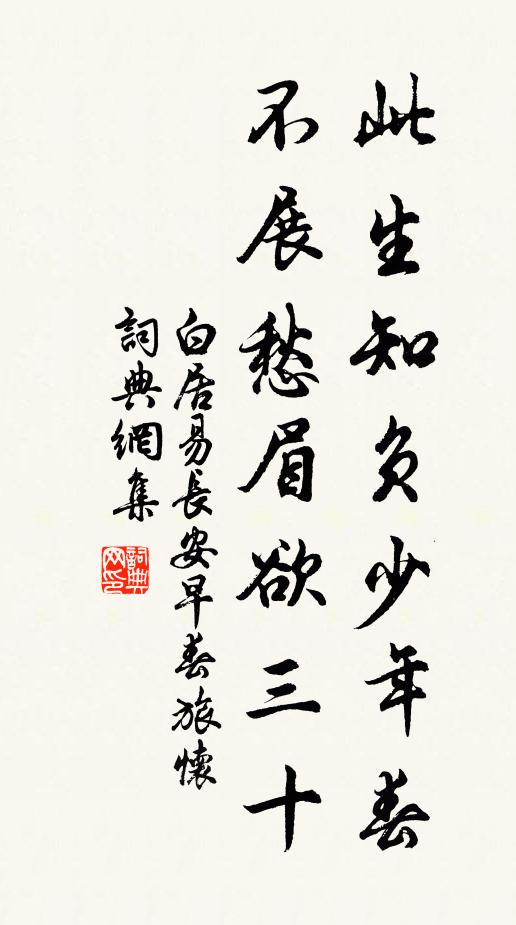 此生知负少年春
不展愁眉欲三十
白居易長安早春旅懷
詞典網集
詞典网印